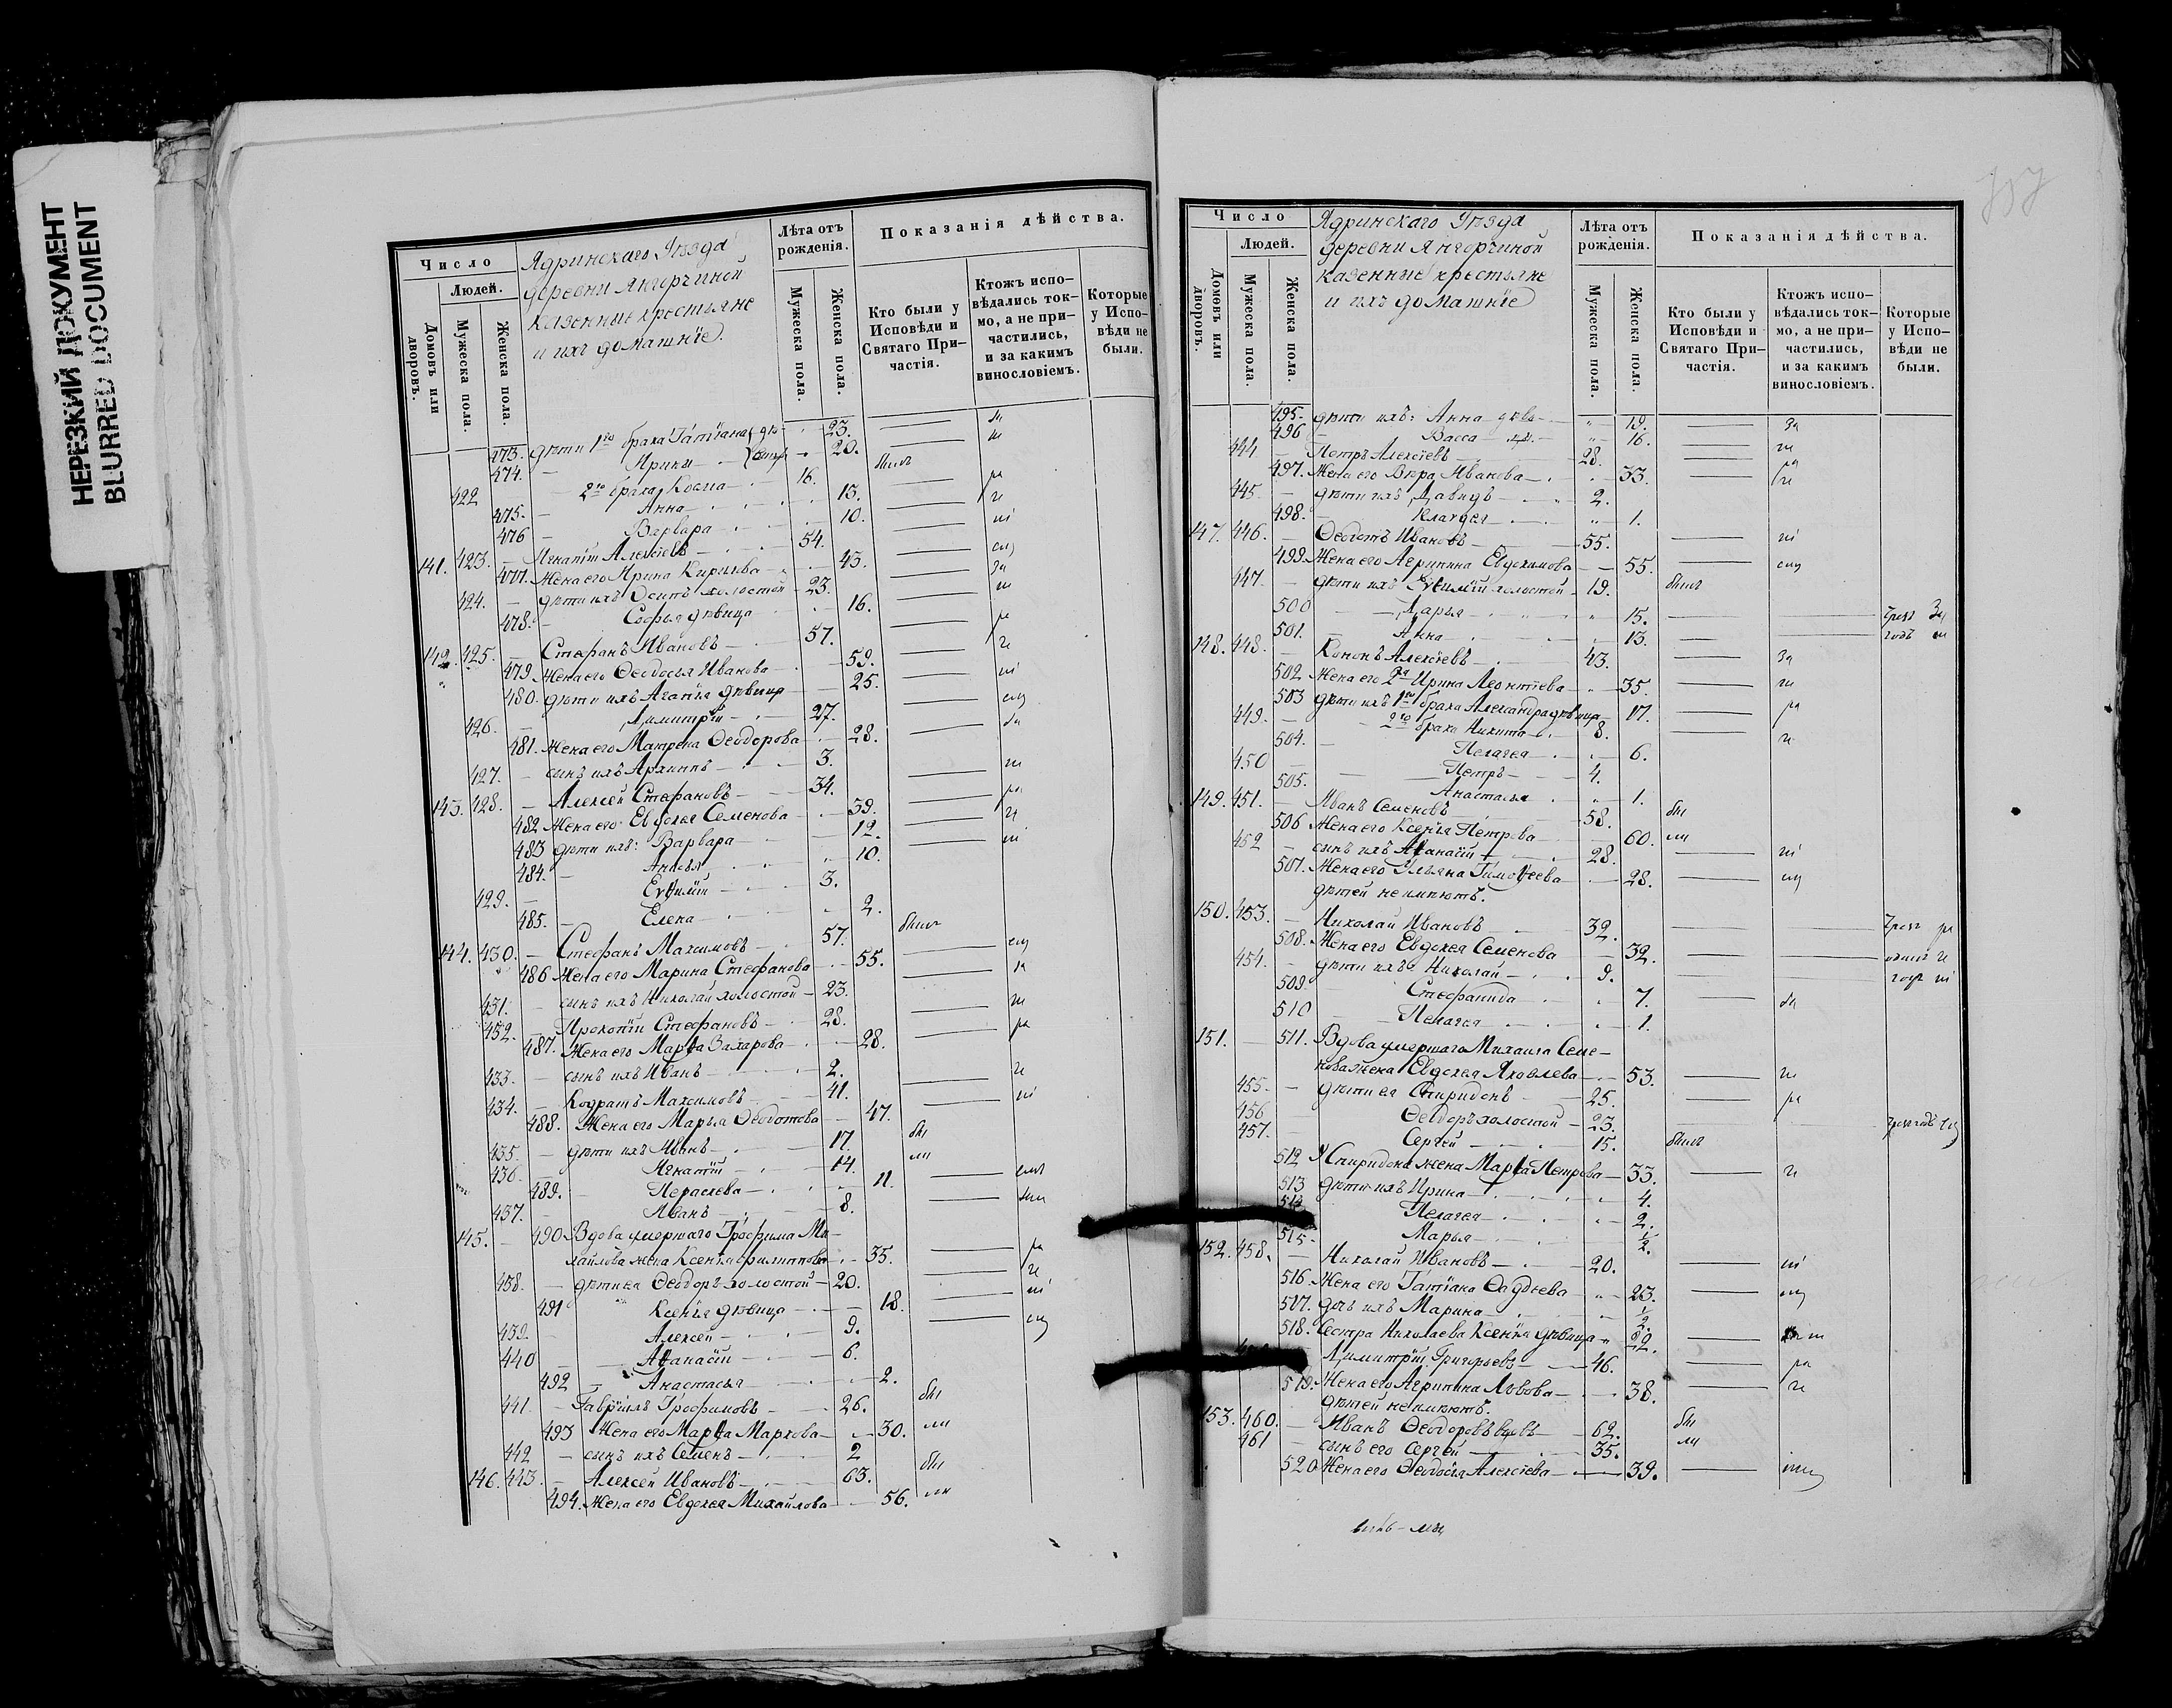 НЕРЕЗКИЙ ДОКУМЕНТ
BLURRED DOCUMENT
Число
Людей.
Домовъ или дворовъ.
Мужеска пола.
Женска пола.
Ядринскаго Уѣзда
деревни Янгорчиной
казенные крестьяне
и ихъ домашніе.
Лѣта отъ рожденія.
Мужеска пола.
Женска пола.
Показанія дѣйства.
Кто были у Исповѣди и Святаго При-частія.
Ктожъ испо-вѣдались ток-мо, а не при-частились, и за какимъ винословіемъ.
Которые у Испо-вѣди не были.
473. дѣти 1го брака Татіана 23.
474. – Ирина 20.
422 – 2го брака Косма 16. былъ
475. – Анна 13.
476 – Варвара 10.
141. 423. – Игнатій Алексѣевъ 54.
477. Жена его Ирина Кирилова 43.
424. – дѣти ихъ Осипъ холостой 23.
478. – Софья дѣвица 16.
142. 425. – Стефанъ Ивановъ 57.
479. Жена его Ѳеодосья Иванова 59.
480. дѣти ихъ Агапія дѣвица 25.
426. – Димитрій 27.
481. Жена его Матрена Ѳеодорова 28.
427. – сынъ ихъ Архиппъ 3.
143. 428. – Алексѣй Стефановъ 34.
482 Жена его Евдокея Семенова 39.
483 дѣти ихъ: Варвара 12.
484. – Анисья 10.
429. – Евѳимій 3.
485. – Елена 2.
144. 430. – Стефанъ Максимовъ 57. былъ
486 Жена его Марина Стефанова 55.
431. – сынъ ихъ Николай холостой 23.
432. – Прокопій Стефановъ 28.
487. Жена его Марѳа Захарова 28.
433. – сынъ ихъ Иванъ 2.
434. – Кодратъ Максимовъ 41.
488. Жена его Марья Ѳедотова 47.
435. – дѣти ихъ Иванъ 17. бы
436. – Игнатій 14. ли
489. – Параскева 11.
437. – Иванъ 8.
145. – 490 Вдова умершаго Трофима Ми-
хайлова жена Ксенія Филиппова 35.
438. – дѣти ея Ѳеодоръ холостой 20.
491 Ксенія дѣвица 18.
439. – Алексѣй 9.
440 – Аѳанасій 6.
492 – Анастасья 2.
441. – Гавріилъ Трофимовъ 26. бы
493 Жена его Марѳа Маркова 30. ли
442 – сынъ ихъ Семенъ 2
146. 443. – Алексѣй Ивановъ 63. бы
494. Жена его Евдокея Михайлова 56. ли
Число
Людей.
Домовъ или дворовъ.
Мужеска пола.
Женска пола.
Ядринскаго Уѣзда
деревни Янгорчиной
казенные крестьяне
и ихъ домашніе
Лѣта отъ рожденія.
Мужеска пола.
Женска пола.
Показанія дѣйства.
Кто были у Исповѣди и Святаго При-частія.
Ктожъ испо-вѣдались ток-мо, а не при-частились, и за какимъ винословіемъ.
Которые у Испо-вѣди не были.
495. дѣти ихъ: Анна 19. За
496 – Васса 16.
444 – Петръ Алексѣевъ 28.
497. Жена его Вѣра Иванова 33.
445. – дѣти ихъ Давидъ 2.
498. – Клавдея 1.
147. 446. – Ѳеодотъ Ивановъ 55.
499. Жена его Агрипина Евдокимова 55.
447. – дѣти ихъ Евѳимій холостой 19. былъ
500 – Дарья 15. чрезъ
501. – Анна 13. годъ
148. 448. – Кононъ Алексѣевъ 43. За
502. Жена его 2я Ирина Леонтіева 35.
503 дѣти ихъ 1го брака Александра дѣвица 17.
449. – 2го брака Никита 8.
504. – Пелагея 6.
450 – Петръ 4.
505. – Анастасья 1.
149. 451. – Иванъ Семеновъ 58. бы
506 Жена его Ксенія Петрова 60. ли
452 – сынъ ихъ Аѳанасій 28.
507. Жена его Ульяна Тимоѳеева 28.
дѣтей не имѣютъ.
150. 453. – Николай Ивановъ 32. чрезъ
508. Жена его Евдокея Семенова 32. одинъ
454. – дѣти ихъ Николай 9. годъ
509. – Стефанида 7.
510 – Пелагея 1.
151. – 511. Вдова умершаго Михаила Семе-
нова жена Евдокея Яковлева 53.
455. – дѣти ея Спиридонъ 25.
456 – Ѳеодоръ холостой 23.
457. – Сергѣй 15. былъ
512 У Спиридона жена Марѳа Петрова 33.
513 дѣти ихъ Ирина 4.
514 Пелагея 2.
515. Марья ½.
152. 458. – Николай Ивановъ 20.
516. Жена его Татіана Ѳаддеева 23.
517. дочь ихъ Марина ½.
518. Сестра Николаева Ксенія дѣвица 22.
Димитрій Григорьевъ 46.
519. Жена его Агрипина Львова 38.
дѣтей не имѣютъ.
153. 460. – Иванъ Ѳеодоровъ вдовъ 62. бы
461 – сынъ его Сергѣй 35. ли
520 Жена его Ѳеодосія Алексѣева 39.